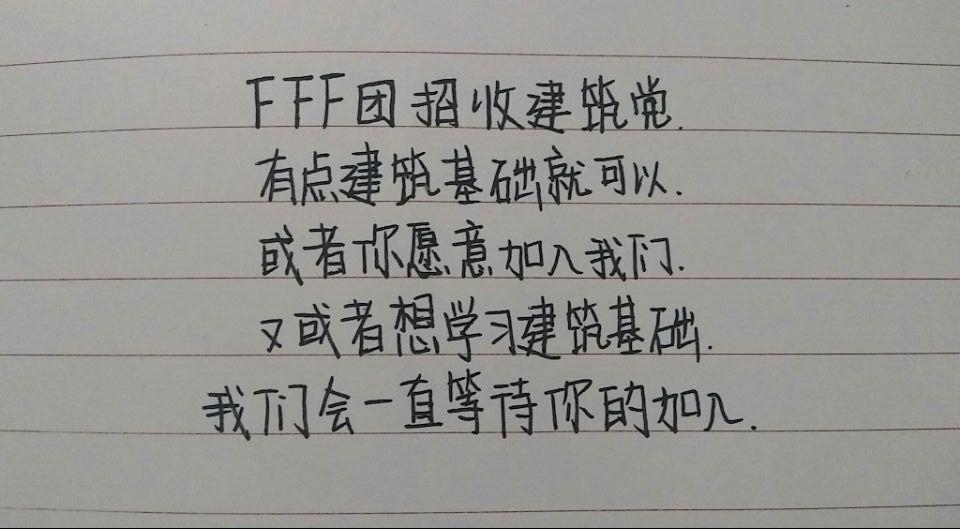 FFF团招收建筑党.
有点建筑基础就可以.
或者你愿意加入我们.
又或者想学习建筑基础.
我们会一直等待你的加入.